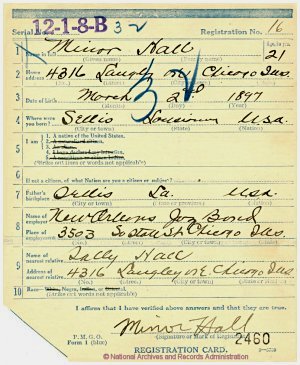 Serial No. 12-1-8-B 3-2 Registration No. 16
1 Name in full Minor Hall Age, in yrs. 21
(Given name) (Family name)
2 Home address 4316 Langley ave Chicago Ills.
(No.) (Street) (City) (State)
3 Date of birth March 2nd 1897
(Month) (Day) (Year)
4 Where were you born? Sellis Louisiana U.S.a.
(City or town) (State) (Nation)
5 I am
1. A native of the United States.
(Strike out lines or words not applicable)
6 If not a citizen, of what Nation are you a citizen or subject?
7 Father's birthplace La. U.S.a.
(City or town) (State) (Nation)
8 Name of employer New Orleans Jazz Band
Place of employment 3503 So State St Chicago Ills.
(No.) (Street) (City or town) (State)
9 Name of nearest relative Sally Hall
Address of nearest relative 4316 Langley ave Chicago Ills
(No.) (Street) (City or town) (State or nation)
10 Race—White, Negro, Indian, or Oriental
(Strike out words not applicable)
I affirm that I have verified above answers and that they are true.
Minor Hall
P. M. G. O.
Form 1 (blue)
(Signature or Mark of Registrant)
2460
REGISTRATION CARD.
© National Archives and Records Administration